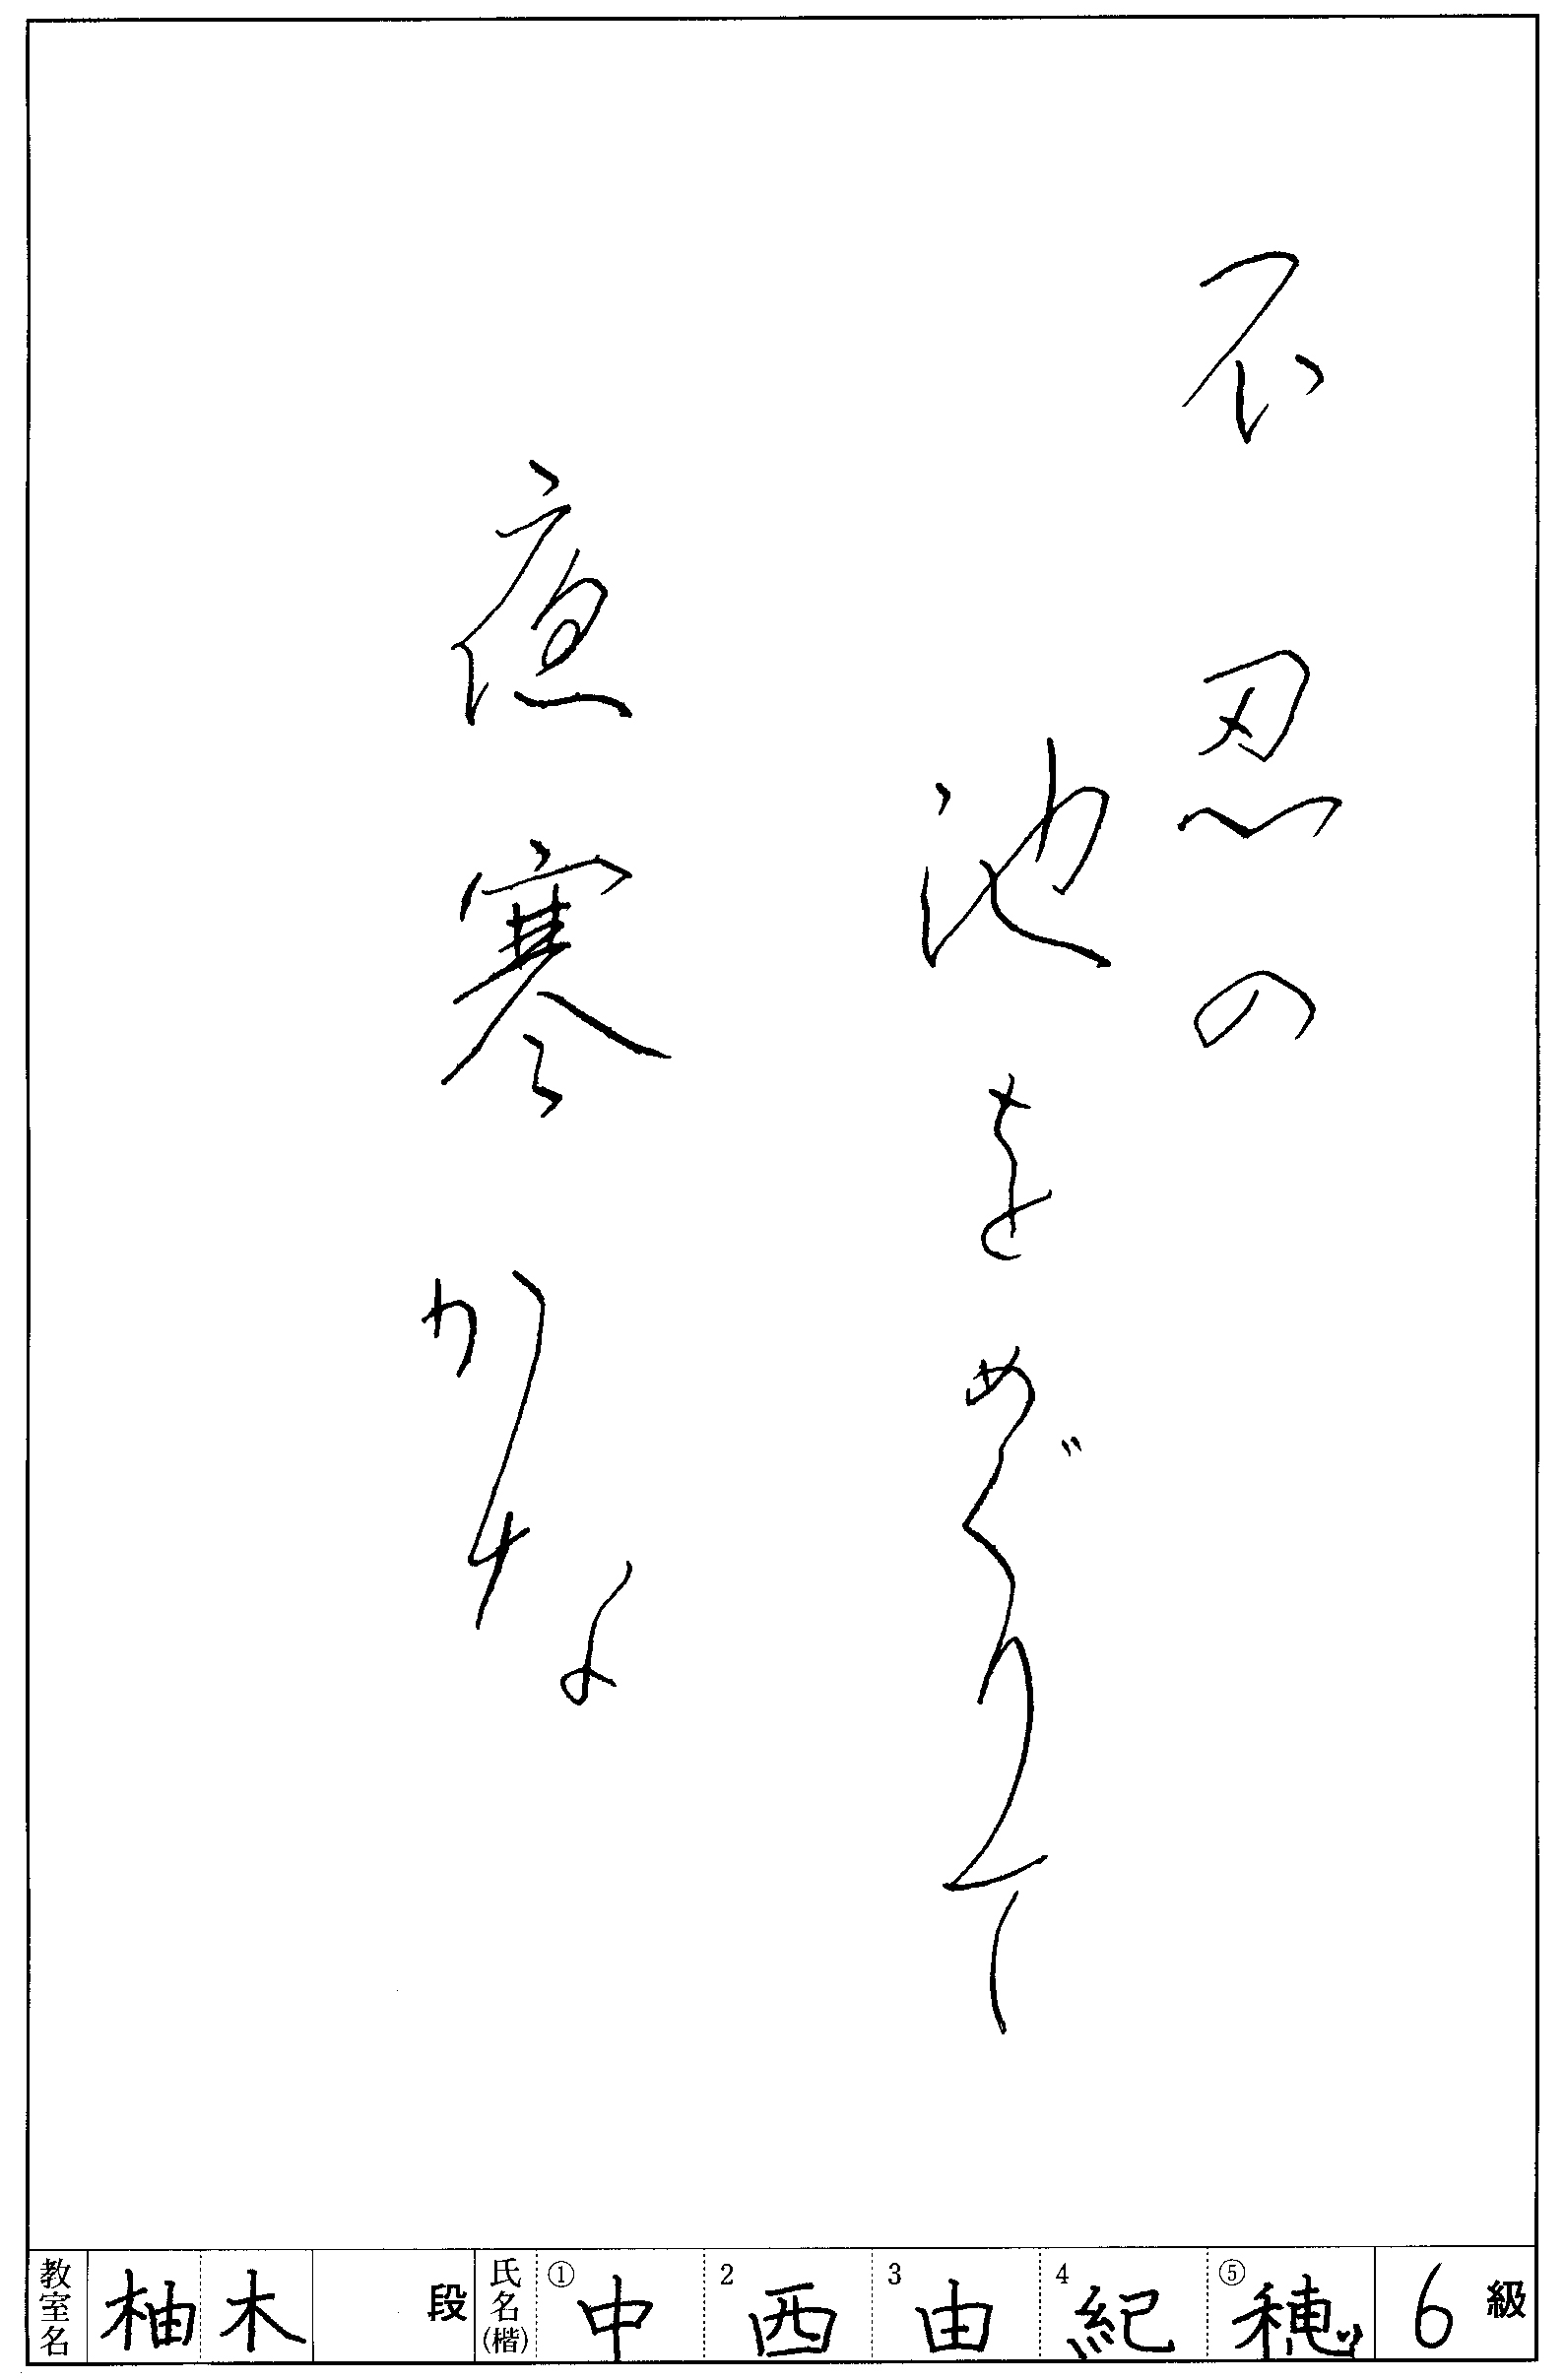 不忍の
池をめぐりて
夜寒かな
教室名 柚木 段 氏名(楷) ①中 2西 3由 4紀 ⑤穂 6級